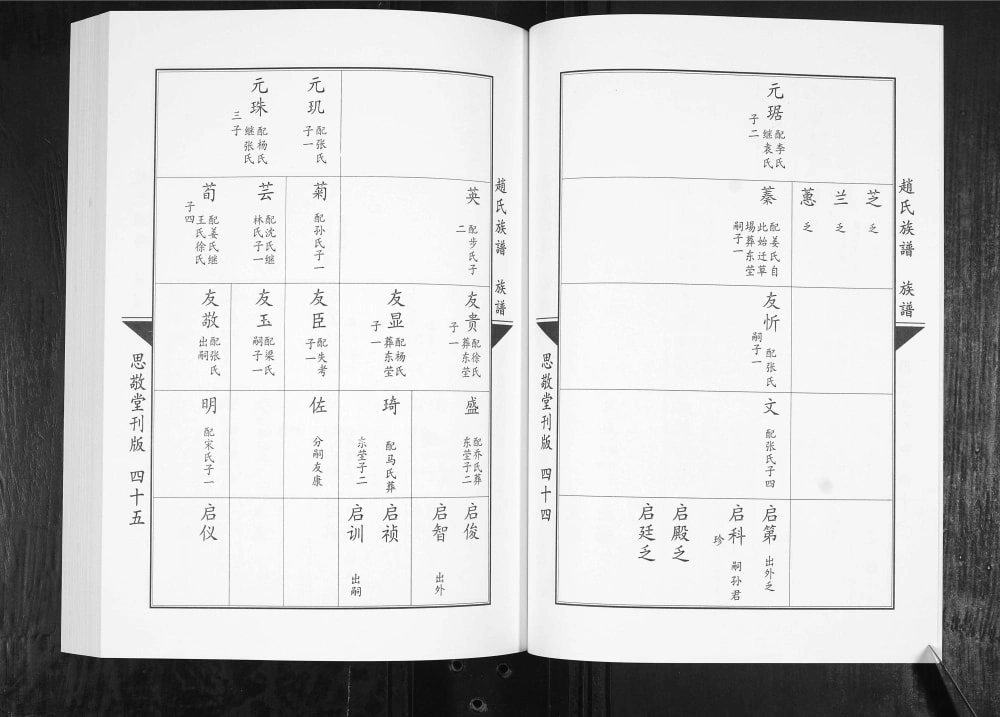 趙氏族譜 族譜
思敬堂刊版 四十四
元琚
配李氏
继袁氏
子二
芝
乏
兰
乏
蕙
乏
蓁
配姜氏自
此始迁草
場葬东茔
嗣子一
友忻
配张氏
嗣子一
文
配张氏子四
启第
出外乏
启科
嗣孙君
珍
启殿乏
启廷乏
趙氏族譜 族譜
思敬堂刊版 四十五
元玑
配张氏
子一
元珠
配杨氏
继张氏
三子
英
配步氏子
二
菊
配孙氏子一
芸
配沈氏继
林氏子一
荀
配姜氏继
王氏徐氏
子四
友贵
配徐氏
葬东茔
子一
友显
配杨氏
葬东茔
子一
友臣
配失考
子一
友玉
配梁氏
嗣子一
友敬
配张氏
出嗣
盛
配乔氏葬
东茔子二
琦
配马氏葬
茔子二
佐
分嗣友康
明
配宋氏子一
启俊
启智
出外
启祯
启训
出嗣
启仪